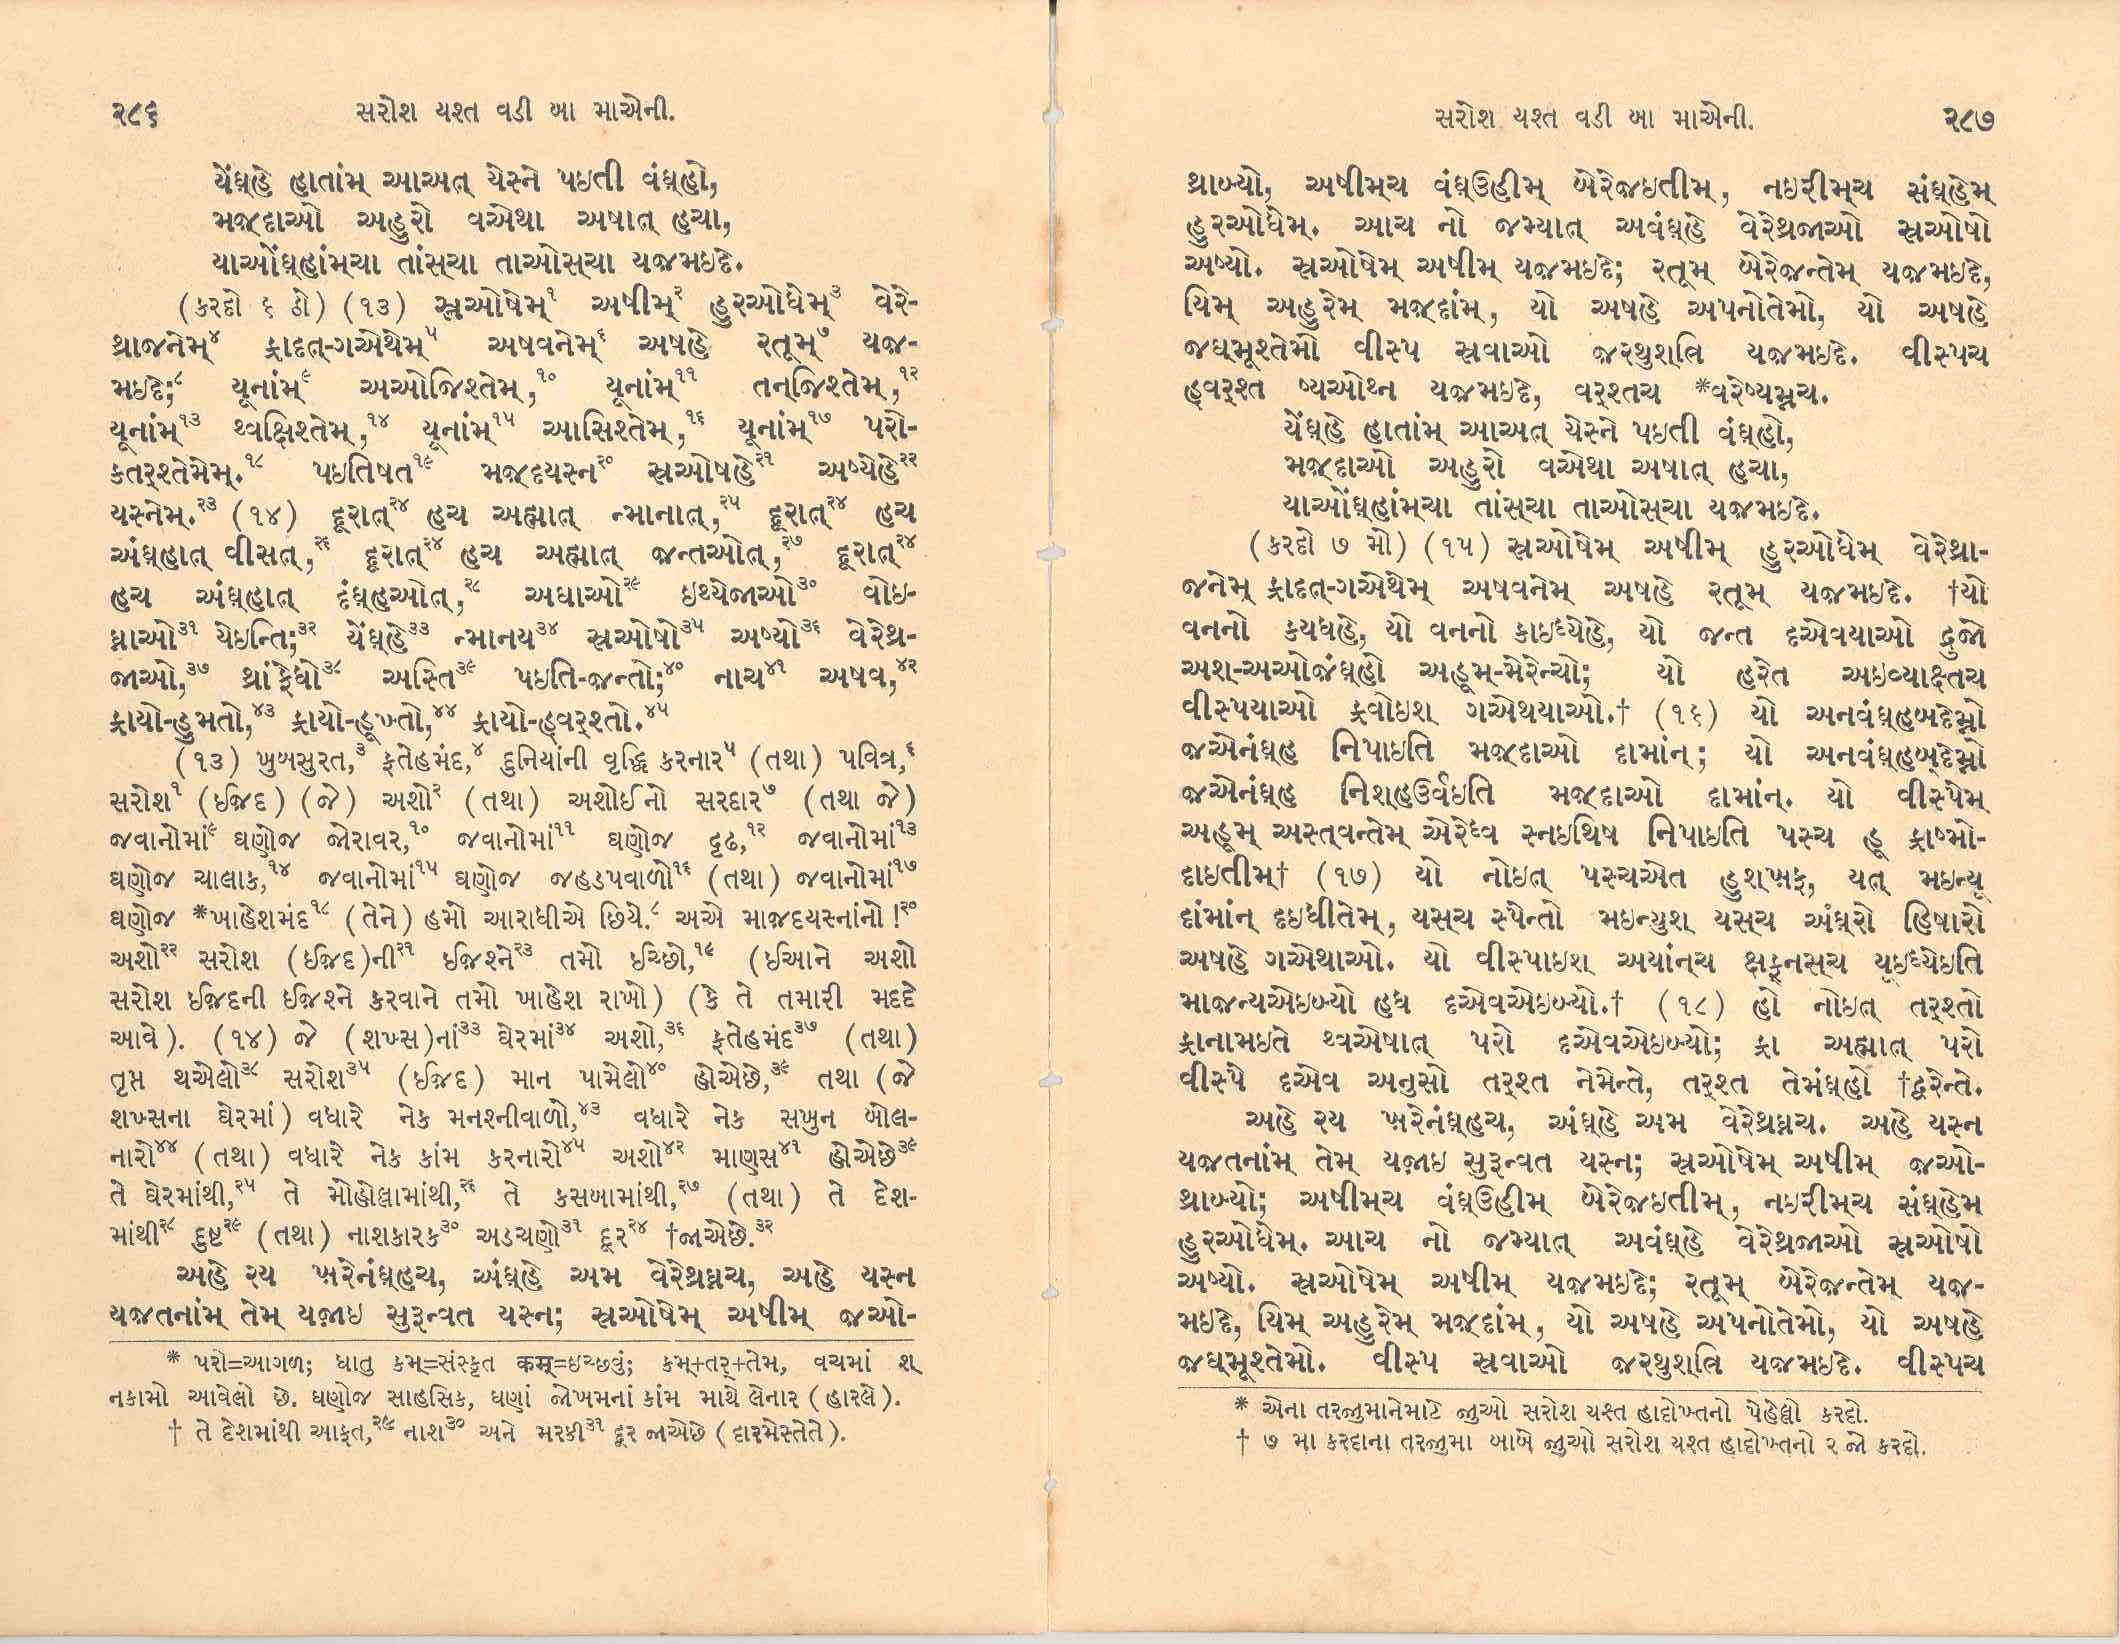 ૨૮૬ સરોશ યશ્ત વડી બા માએની.
યેંઘ્હે હાતાંમ્ આઅત્ યેસ્ને પઇતી વંઘ્હો,
મજ઼્દાઓ અહુરો વએથા અષાત્ હચા,
યાઓંઘ્હાંમ્ચા તાંસ્ચા તાઓસ્ચા યજ઼મઇદે.
(કરદો ૬ ઠો) (૧૩) સ્રઓષેમ્૧ અષીમ્૨ હુરઓધેમ્૩ વેરે-
થ્રાજનેમ્૪ ફ્રાદત્-ગએથેમ્૫ અષવનેમ્૬ અષહે રતૂમ્૭ યજ઼-
મઇદે;૮ યૂનાંમ્૯ અઓજિશ્તેમ્,૧૦ યૂનાંમ્૧૧ તન્જિશ્તેમ્,૧૨
યૂનાંમ્૧૩ થ્વક્ષિશ્તેમ્,૧૪ યૂનાંમ્૧૫ આસિશ્તેમ્,૧૬ યૂનાંમ્૧૭ પરો-
કતર્શ્તેમેમ્.૧૮ પઇતિષત૧૯ મજ઼્દયસ્ન૨૦ સ્રઓષહે૨૧ અષ્યેહે૨૨
યસ્નેમ્.૨૩ (૧૪) દૂરાત્૨૪ હચ અહ્માત્ ન્માનાત્,૨૫ દૂરાત્૨૪ હચ
અંઘ્હાત્ વીસત્,૨૬ દૂરાત્૨૪ હચ અહ્માત્ જ઼ન્તઓત્,૨૭ દૂરાત્૨૪
હચ અંઘ્હાત્ દંઘ્હઓત્,૨૮ અઘાઓ૨૯ ઇથ્યેજાઓ૩૦ વોઇ-
ઘ્નાઓ૩૧ યેઇન્તિ;૩૨ યેંઘ્હે૩૩ ન્માનય૩૪ સ્રઓષો૩૫ અષ્યો૩૬ વેરેથ્ર-
જાઓ,૩૭ થ્રાંફેધો૩૮ અસ્તિ૩૯ પઇતિ-જ઼ન્તો;૪૦ નાચ૪૧ અષવ,૪૨
ફ્રાયો-હુમતો,૪૩ ફ્રાયો-હૂખ્તો,૪૪ ફ્રાયો-હ્વર્શ્તો.૪૫
(૧૩) ખુબસુરત,૩ ફતેહમંદ,૪ દુનિયાંની વૃદ્ધિ કરનાર૫ (તથા) પવિત્ર,૬
સરોશ૧ (ઈજ઼દ) (જે) અશો૨ (તથા) અશોઈનો સરદાર૭ (તથા જે)
જવાનોમાં૯ ઘણોજ જોરાવર,૧૦ જવાનોમાં૧૧ ઘણોજ દૃઢ,૧૨ જવાનોમાં૧૩
ઘણોજ ચાલાક,૧૪ જવાનોમાં૧૫ ઘણોજ જહડપવાળો૧૬ (તથા) જવાનોમાં૧૭
ઘણોજ *ખાહેશમંદ૧૮ (તેને) હમો આરાધીએ છિયે.૮ અએ માજ઼દયસ્નાંનો!૨૦
અશો૨૨ સરોશ (ઈજ઼દ)ની૨૧ ઈજ઼શ્ને૨૩ તમો ઈચ્છો,૧૯ (ઈઆને અશો
સરોશ ઈજ઼દની ઈજ઼શ્ને કરવાને તમો ખાહેશ રાખો) (કે તે તમારી મદદે
આવે). (૧૪) જે (શખ્સ)નાં૩૩ ઘેરમાં૩૪ અશો,૩૬ ફતેહમંદ૩૭ (તથા)
તૃપ્ત થએલો૩૮ સરોશ૩૫ (ઈજ઼દ) માન પામેલો૪૦ હોએછે,૩૯ તથા (જે
શખ્સના ઘેરમાં) વધારે નેક મનશ્નીવાળો,૪૩ વધારે નેક સખુન બોલ-
નારો૪૪ (તથા) વધારે નેક કાંમ કરનારો૪૫ અશો૪૨ માણસ૪૧ હોએછે૩૯
તે ઘેરમાંથી,૨૫ તે મોહોલ્લામાંથી,૨૬ તે કસબામાંથી,૨૭ (તથા) તે દેશ-
માંથી૨૮ દુષ્ટ૨૯ (તથા) નાશકારક૩૦ અડચણો૩૧ દૂર૨૪ †જાએછે.૩૨
અહે રય ખ઼રેનંઘ્હચ, અંઘ્હે અમ વેરેથ્રઘ્નચ, અહે યસ્ન
યજ઼તનાંમ્ તેમ્ યજ઼ાઇ સુરૂન્વત યસ્ન; સ્રઓષેમ્ અષીમ્ જ઼ઓ-
* પરો=આગળ; ધાતુ કમ્=સંસ્કૃત कम्=ઇચ્છવું; કમ્+તર્+તેમ, વચમાં શ્
નકામો આવેલો છે. ઘણોજ સાહસિક, ઘણાં જોખમનાં કાંમ માથે લેનાર (હારલે).
† તે દેશમાંથી આફત,૨૯ નાશ૩૦ અને મરકી૩૧ દૂર જાએછે (દારમેસ્તેતે).
સરોશ યશ્ત વડી બા માએની. ૨૮૭
થ્રાબ્યો, અષીમ્ચ વંઘ્ઉહીમ્ બેરેજ઼ઇતીમ્, નઇરીમ્ચ સંઘ્હેમ્
હુરઓધેમ્. આચ નો જમ્યાત્ અવંઘ્હે વેરેથ્રજાઓ સ્રઓષો
અષ્યો. સ્રઓષેમ્ અષીમ્ યજ઼મઇદે; રતૂમ્ બેરેજ઼ન્તેમ્ યજ઼મઇદે,
યિમ્ અહુરેમ્ મજ઼્દાંમ્, યો અષહે અપનોતેમો, યો અષહે
જઘ્મૂશ્તેમો વીસ્પ સ્રવાઓ જ઼રથુશ્ત્રિ યજ઼મઇદે. વીસ્પચ
હ્વર્શ્ત ષ્યઓથ્ન યજ઼મઇદે, વર્શ્તચ *વરેષ્યમ્નચ.
યેંઘ્હે હાતાંમ્ આઅત્ યેસ્ને પઇતી વંઘ્હો,
મજ઼્દાઓ અહુરો વએથા અષાત્ હચા,
યાઓંઘ્હાંમ્ચા તાંસ્ચા તાઓસ્ચા યજ઼મઇદે.
(કરદો ૭ મો) (૧૫) સ્રઓષેમ્ અષીમ્ હુરઓધેમ્ વેરેથ્રા-
જનેમ્ ફ્રાદત્-ગએથેમ્ અષવનેમ્ અષહે રતૂમ્ યજ઼મઇદે. †યો
વનનો કયધહે, યો વનનો કાઇધ્યેહે, યો જન્ત દએવયાઓ દ્રુજો
અશ-અઓજંઘ્હો અહૂમ્-મેરેન્ચો; યો હરેત અઇવ્યાક્ષ્તચ
વીસ્પયાઓ ફ્રવોઇશ્ ગએથયાઓ.† (૧૬) યો અનવંઘ્હબ્દેમ્નો
જ઼એનંઘ્હ નિપાઇતિ મજ઼્દાઓ દામાંન્; યો અનવંઘ્હબ્દેમ્નો
જ઼એનંઘ્હ નિશ્હઉર્વઇતિ મજ઼્દાઓ દામાંન્. યો વીસ્પેમ્
અહૂમ્ અસ્ત્વન્તેમ્ એરેધ્વ સ્નઇથિષ નિપાઇતિ પસ્ચ હૂ ફ્રાષ્મો-
દાઇતીમ્† (૧૭) યો નોઇત્ પસ્ચએત હુશ્ખ઼ફ, યત્ મઇન્યૂ
દાંમાંન્ દઇધીતેમ્, યસ્ચ સ્પેન્તો મઇન્યુશ્ યસ્ચ અંઘ્રો હિષારો
અષહે ગએથાઓ. યો વીસ્પાઇશ્ અયાંન્ચ ક્ષફ્નસ્ચ યૂઇધ્યેઇતિ
માજ઼ન્યએઇબ્યો હધ દએવએઇબ્યો.† (૧૮) હો નોઇત્ તર્શ્તો
ફ્રાનામઇતે થ્વએષાત્ પરો દએવએઇબ્યો; ફ્રા અહ્માત્ પરો
વીસ્પે દએવ અનુસો તર્શ્ત નેમેન્તે, તર્શ્ત તેમંઘ્હો †દ્વરેન્તે.
અહે રય ખ઼રેનંઘ્હચ, અંઘ્હે અમ વેરેથ્રઘ્નચ. અહે યસ્ન
યજ઼તનાંમ્ તેમ્ યજ઼ાઇ સુરૂન્વત યસ્ન; સ્રઓષેમ્ અષીમ્ જ઼ઓ-
થ્રાબ્યો; અષીમ્ચ વંઘ્ઉહીમ્ બેરેજ઼ઇતીમ્, નઇરીમ્ચ સંઘ્હેમ
હુરઓધેમ્. આચ નો જમ્યાત્ અવંઘ્હે વેરેથ્રજાઓ સ્રઓષો
અષ્યો. સ્રઓષેમ્ અષીમ્ યજ઼મઇદે; રતૂમ્ બેરેજ઼ન્તેમ્ યજ઼-
મઇદે, યિમ્ અહુરેમ્ મજ઼્દાંમ્, યો અષહે અપનોતેમો, યો અષહે
જઘ્મૂશ્તેમો. વીસ્પ સ્રવાઓ જ઼રથુશ્ત્રિ યજ઼મઇદે. વીસ્પચ
* એના તરજુમાનેમાટે જુઓ સરોશ યશ્ત હાદોખ્તનો પેહેલ્લો કરદો.
† ૭ મા કરદાના તરજુમા બાબે જુઓ સરોશ યશ્ત હાદોખ્તનો ૨ જો કરદો.